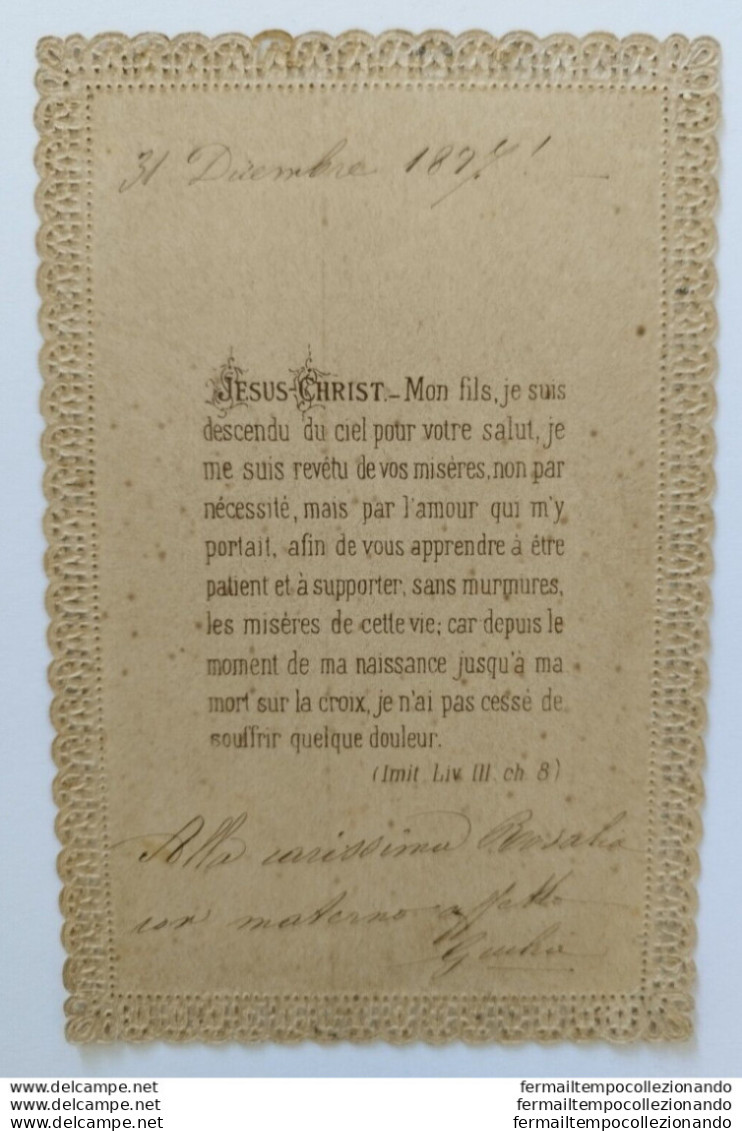 31 Dicembre 1877!
JESUS-CHRIST.- Mon fils, je suis
descendu du ciel pour votre salut, je
me suis revêtu de vos misères, non par
nécessité, mais par l'amour qui m'y
portait, afin de vous apprendre à être
patient et à supporter, sans murmures,
les misères de cette vie; car depuis le
moment de ma naissance jusqu'à ma
mort sur la croix, je n'ai pas cessé de
souffrir quelque douleur.
(Imit. Liv. III. ch. 8)
Alla carissima Rosalia
con materno affetto
Giulia
www.delcampe.net fermailtempocollezionando
www.delcampe.net fermailtempocollezionando
www.delcampe.net fermailtempocollezionando